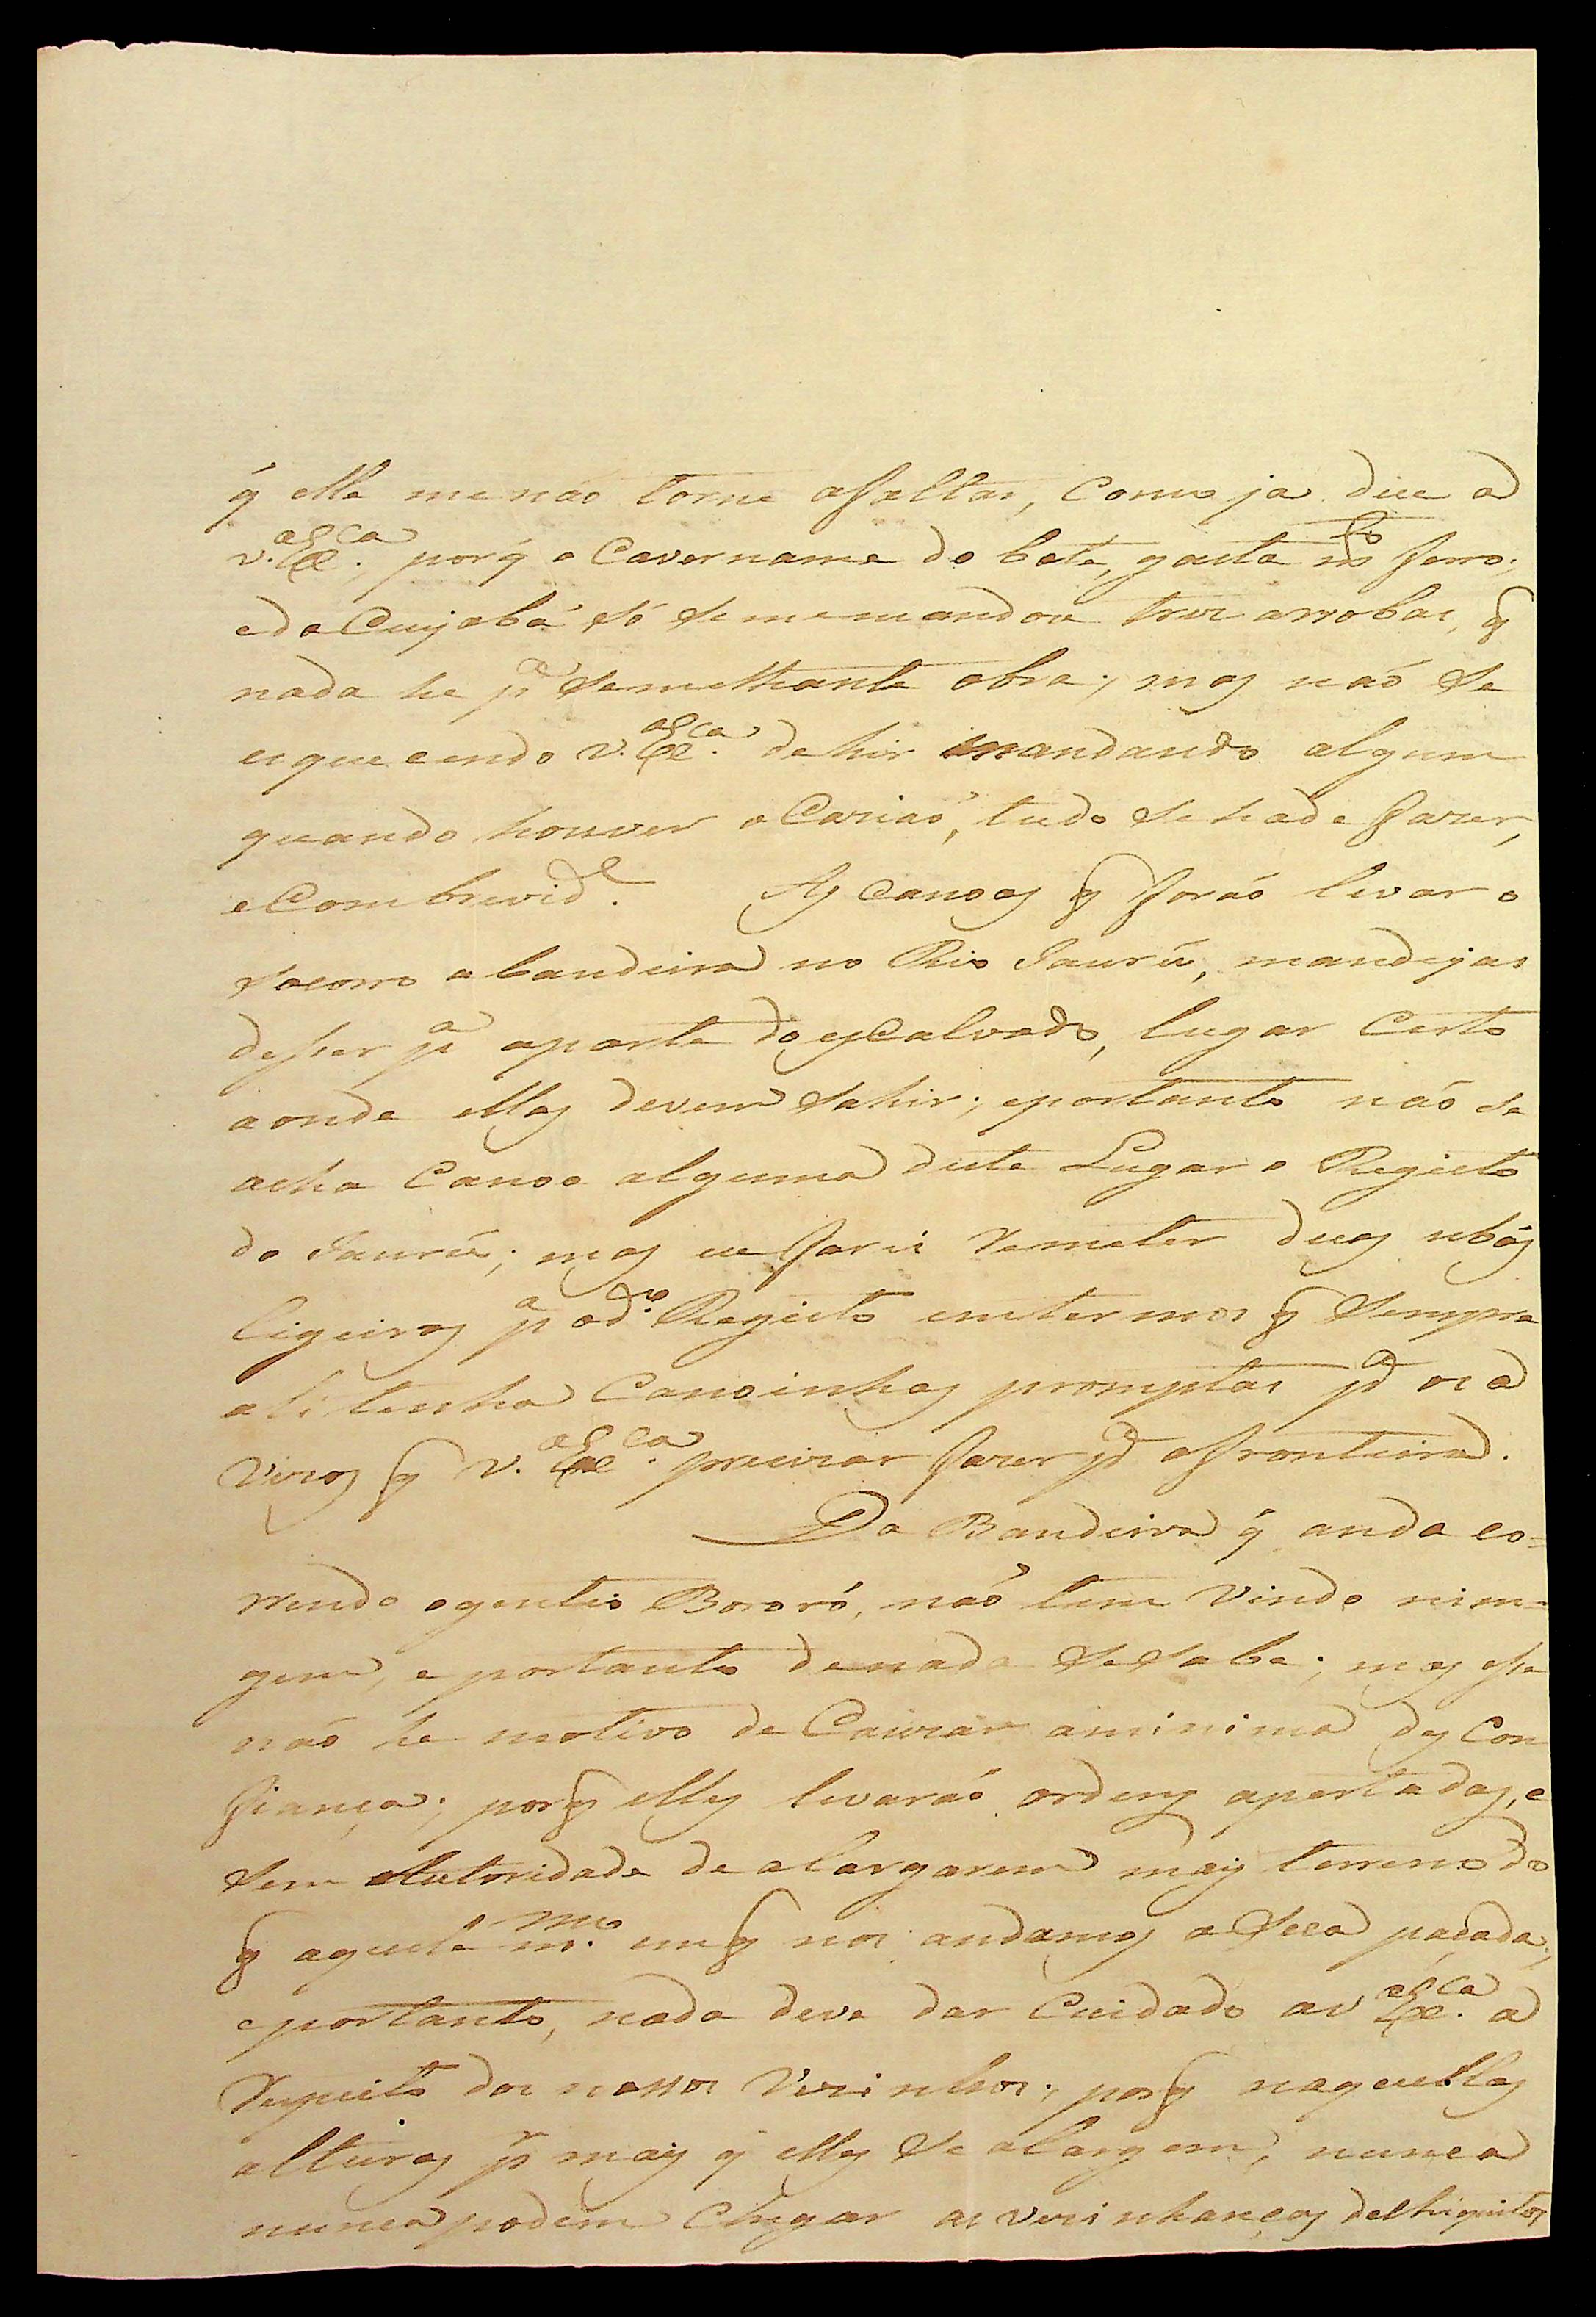 q̃ elle menaõ torne afaltar, Como ja dice a
V. Exca., porq̃ o Cavername do bote, gasta mto ferro;
edo Cuyabá só semenmandou trez arrobas, q̃
nada he pa Semelhante obra; mas naõ se
esquecendo V. Exca. dehir mandando algum
quando houver o Caziaõ, tudo sehade fazer,
eCombrevide. As canoas q̃ foraõ levar o
socorro abandeira no Rio Jaurú, mandejas
desser pa aparte do esCalvado, lugar Certo
aonde ellas devem Sahir; eportanto naõ se
acha Canoa alguma deste Lugar o Registo
do Jaurú; mas eu farei Remeter duas ubás
ligeiras pa odo Registo emtermos q̃ Sempre
alitenha Canoinhas promptas pa os a
vizos q̃ V. Exca. precizar fazer pa afronteira.
Da Bandeira q̃ anda co=
rrendo ogentio Bororó, naõ tem Vindo nim=
gem, eportanto denada Sesabe; mas esse
naõ he motivo de Cauzar aminima des Con
fiança; porq̃ elles levaraõ ordens apertadas, e
Sem Autoridade de alargarem mais terreno do
q̃ aquele mmo. emq̃ nos andamos a Seca paçada;
eportanto, nada deve dar Cuidado aV Exca. a
Respeito dos nossos Vizinhos; porq̃ naquellas
alturas pr mais q̃ elles Se alargem, nunca
nunca podem Chegar as vizinhanças deChiquitos